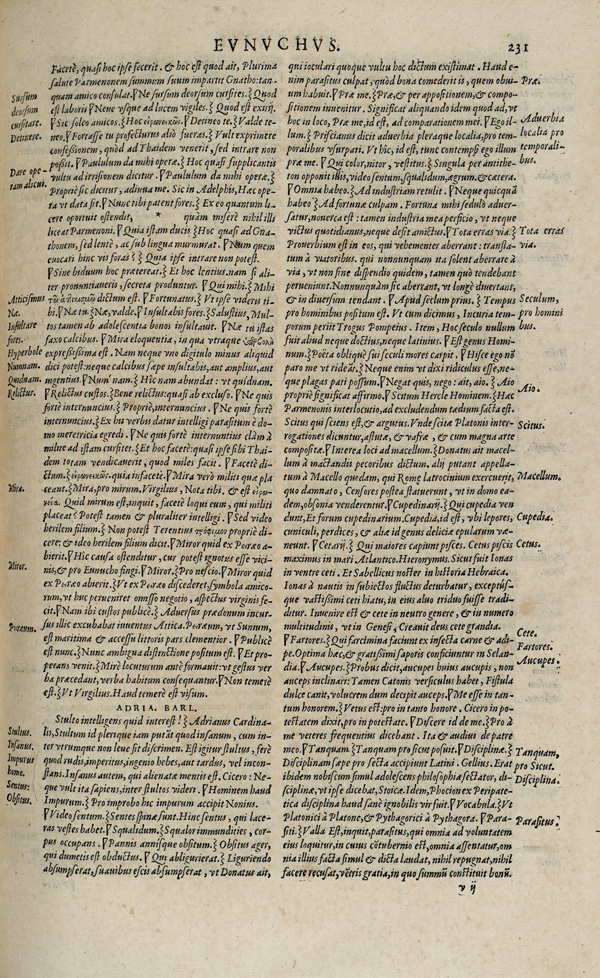 EVNVCHVS.
231
Facetè, quasi hoc ipse fecerit. & hoc est quod ait, Plurima
salute Parmenonem summum suum impartit Gnatho: tan-
quam amico consulat.
Ne sursum deorsum cursites.
Quod
est laboris
Neue vsque ad lucem vigiles.
Quod est exitij.
Sic soleo amicos.
Hoc
Detineo te.
Valde te-
neo.
Fortasse tu profecturus aliò fueras.
Vult exprimere
confessionem, quòd ad Thaidem venerit, sed intrare non
possit.
Paululum da mihi operæ.
Hoc quasi supplicantis
vultu ad irrisionem dicitur.
Paululum da mihi operæ.
Propriè sic dicitur, adiuua me. Sic in Adelphis, Hac ope-
ra vt data sit.
Nunc tibi patent fores.
Ex eo quantum li-
cere oportuit ostendit, * quàm miserè nihil illi
liceat Parmenoni.
Quia istam ducis
Hoc quasi ad Gna-
thonem, sed lentè, ac sub lingua murmurat.
Num quem
euocari hinc vis foras?
Quia ipse intrare non potest.
Sine biduum hoc prætereat.
Et hoc lentius. nam si ali-
ter pronuntiaueris, secreta produntur.
Qui mihi.
Mihi
dictum est.
Fortunatus.
Vt ipse videris ti-
bi.
Næ tu.
Næ, valde.
Insultabis fores.
Salustius, Mul-
tos tamen ab adolescentia bonos insultauit.
Næ tu istas
faxo calcibus.
Mira eloquentia, in qua vtraque
expressissima est. Nam neque vno digitulo minus aliquid
dici potest: neque calcibus sæpe insultabis, aut amplius, aut
ingentius.
Num' nam.
Hîc nam abundat: vt quidnam.
Relictus custos.
Bene relictus: quasi ab excluso.
Ne quis
fortè internuncius.
Propriè, internuncius.
Ne quis fortè
internuncius.
Ex his verbis datur intelligi parasitum è do-
mo meretricia egredi.
Ne quis fortè internuntius clàm à
milite ad istam cursitet.
Et hoc facetè: quasi ipse sibi Thai-
dem totam vendicauerit, quod miles facit.
Facetè di-
ctum.
quia insacetè.
Mira verò militi quæ pla-
ceant.
Mira, pro mirum. Virgilius, Nota tibi, & est
Quid mirum est, inquit, facetè loqui eum, qui militi
placeat? Potest tamen & pluraliter intelligi.
Sed video
herilem filium.
Non potest Terentius
propriè di-
cere: & ideo herilem filium dicit.
Miror qui ex Piræo a-
bierit.
Hîc causa ostenditur, cur potest ignotus esse vici-
nis, & pro Eunucho fingi.
Miror.
Pro nescio.
Miror quid
ex Piræo abierit.
Vt ex Piræo discederet, symbola amico-
rum, vt huc perueniret omisso negotio, aspectus virginis fe-
cit.
Nam ibi custos publicè.
Aduersus prædonum incur-
sus illic excubabat iuuentus Attica. Piræum, vt Sunium,
est maritima & accessu littoris pars clementior.
Publicè
est nunc.
Nunc ambigua distinctione positum est.
Et pro-
perans venit.
Mirè locuturum antè formauit: vt gestus ver
ba præcedant, verba habitum consequantur.
Non temerè
est.
Vt Virgilius. Haud temerè est visum.
ADRIA. BARL.
Stulto intelligens quid interest!
Adrianus Cardina-
lis, Stultum id plerique iam putāt quod insanum, cum in-
ter vtrumque non leue sit discrimen. Est igitur stultus, ferè
quod rudis, imperitus, ingenio hebes, aut tardus, vel incon-
stans. Insanus autem, qui alienatæ mentis est. Cicero: Ne-
que vult ita sapiens, inter stultos videri.
Hominem haud
Impurum.
Pro improbo hîc impurum accipit Nonius.
Video sentum.
Sentes spinæ sunt. Hinc sentus, qui lace-
ras vestes habet.
Squalidum.
Squalor immundities, cor-
pus occupans.
Pannis annisque obsitum.
Obsitus ager,
qui dumetis est obductus.
Qui abligurierat.
Liguriendo
absumpserat, suauibus escis absumpserat, vt Donatus ait,
Sursum
deorsum
cursitare.
Detinere.
Dare ope-
ram alicui.
Atticismus
Næ.
Insultare
fores.
Hyperbole
Numnam.
Quidnam.
Relictus.
Mira.
Miror.
Piræum.
Stultus.
Insanus.
Impurus
homo.
Sentus.
Obsitus.
qui ioculari quoque vultu hoc dictum existimat. Haud e-
nim parasitus culpat, quòd bona comederit is, quem obui-
um habuit.
Præ.
Præ, & per appositionem, & compo-
sitionem inuenitur. Significat aliquando idem quod ad, vt
hoc in loco, Præ me, id est, ad comparationem mei.
Ego il-
lum.
Priscianus dicit aduerbia pleraque localia, pro tem-
poralibus vsurpari. Vt hîc, id est, tunc contempsi ego illum
præ me.
Qui color, nitor, vestitus.
Singula per antithe-
ton opponit illis, video sentum, squalidum, ægrum, & cætera.
Omnia habeo.
Ad industriam retulit.
Neque quicquā
habeo
Ad fortunā culpam. Fortuna mihi sedulò aduer-
satur, nouerca est: tamen industria mea perficio, vt neque
victus quotidianus, neque desit amictus.
Tota erras via
Prouerbium est in eos, qui vehementer aberrant: transla-
tum à viatoribus. qui nonnunquam ita solent aberrare à
via, vt non sine dispendio quidem, tamen quò tendebant
perueniunt. Nonnunquàm sic aberrant, vt longè diuertant,
& in diuersum tendant.
Apud seclum prius.
Tempus
pro hominibus positum est. Vt cum dicimus, Incuria tem-
porum periit Trogus Pompeius. Item, Hoc seculo nullum
fuit aliud neque doctius, neque latinius.
Est genus Homi-
num.
Poëta obliquè sui seculi mores carpit.
Hisce ego nō
paro me vt rideāt.
Neque enim vt dixi ridiculus esse, ne-
que plagas pati possum.
Negat quis, nego: ait, aio.
Aio
propriè significat affirmo.
Scitum Hercle Hominem.
Hæc
Parmenonis interlocutio, ad excludendum tædium facta est.
Scitus qui sciens est, & argutus. Vnde scitæ Platonis inter-
rogationes dicuntur, astutæ, & vafræ, & cum magna arte
compositæ.
Interea loci ad macellum.
Donatus ait macel-
lum à mactandis pecoribus dictum. alij putant appella-
tum à Macello quodam, qui Romę latrocinium exercuerit,
quo damnato, Censores postea statuerunt, vt in domo ea-
dem, obsonia venderentur.
Cupedinarij.
Qui cupedia ven
dunt, Et forum cupedinarium. Cupedia, id est, vbi lepores,
cuniculi, perdices, & aliæ id genus deliciæ epularum væ-
neunt.
Cetarij.
Qui maiores capiunt pisces. Cetus piscis
maximus in mari Atlantico. Hieronymus. Sicut fuit Ionas
in ventre ceti. Et Sabellicus noster in historia Hebraica.
Ionas à nautis in subiectos fluctus deturbatur, exceptus-
que vastissimi ceti hiatu, in eius aluo triduo fuisse tradi-
ditur. Inuenire est & cete in neutro genere, & in numero
multitudinis, vt in Genesi, Creauit deus cete grandia.
Fartores.
Qui farcimina faciunt ex insecta carne & adi-
pe. Optima hæc, & gratissimi saporis conficiuntur in Selan-
dia.
Aucupes.
Probus dicit, aucupes huius aucupis, non
auceps inclinari: Tamen Catonis versiculus habet, Fistula
dulcè canit, volucrem dum decipit auceps.
Me esse in tan-
tum honorem.
Vetus est: pro in tanto honore. Cicero in po-
testatem dixit, pro in potestate.
Discere id de me.
Pro à
me veteres frequentius dicebant. Ita & audiui de patre
meo.
Tanquam.
Tanquam pro sicut posuit.
Disciplinæ.
Disciplinam sæpe pro secta accipiunt Latini. Gellius. Erat
ibidem nobiscum simul adolescens philosophiæ sectator, di-
sciplinæ, vt ipse dicebat, Stoicæ. Idem, Phocion ex Peripate-
tica disciplina haud sanè ignobilis vir fuit.
Vocabula.
Vt
Platonici à Platone, & Pythagorici à Pythagora.
Para-
siti.
Valla Est, inquit, parasitus, qui omnia ad voluntatem
eius loquitur, in cuius cōtubernio est, omnia assentatur, om
nia illius facta simul & dicta laudat, nihil repugnat, nihil
facere recusat, vētris gratia, in quo summū constituit bonū.
v ij
Præ.
Aduerbia
localia pro
temporali-
bus.
Tota erras
via.
Seculum,
pro homini
bus.
Aio.
Scitus.
Macellum.
Cupedia.
Cetus.
Cete.
Fartores.
Aucupes.
Tanquam,
pro Sicut.
Disciplina.
Parasitus.